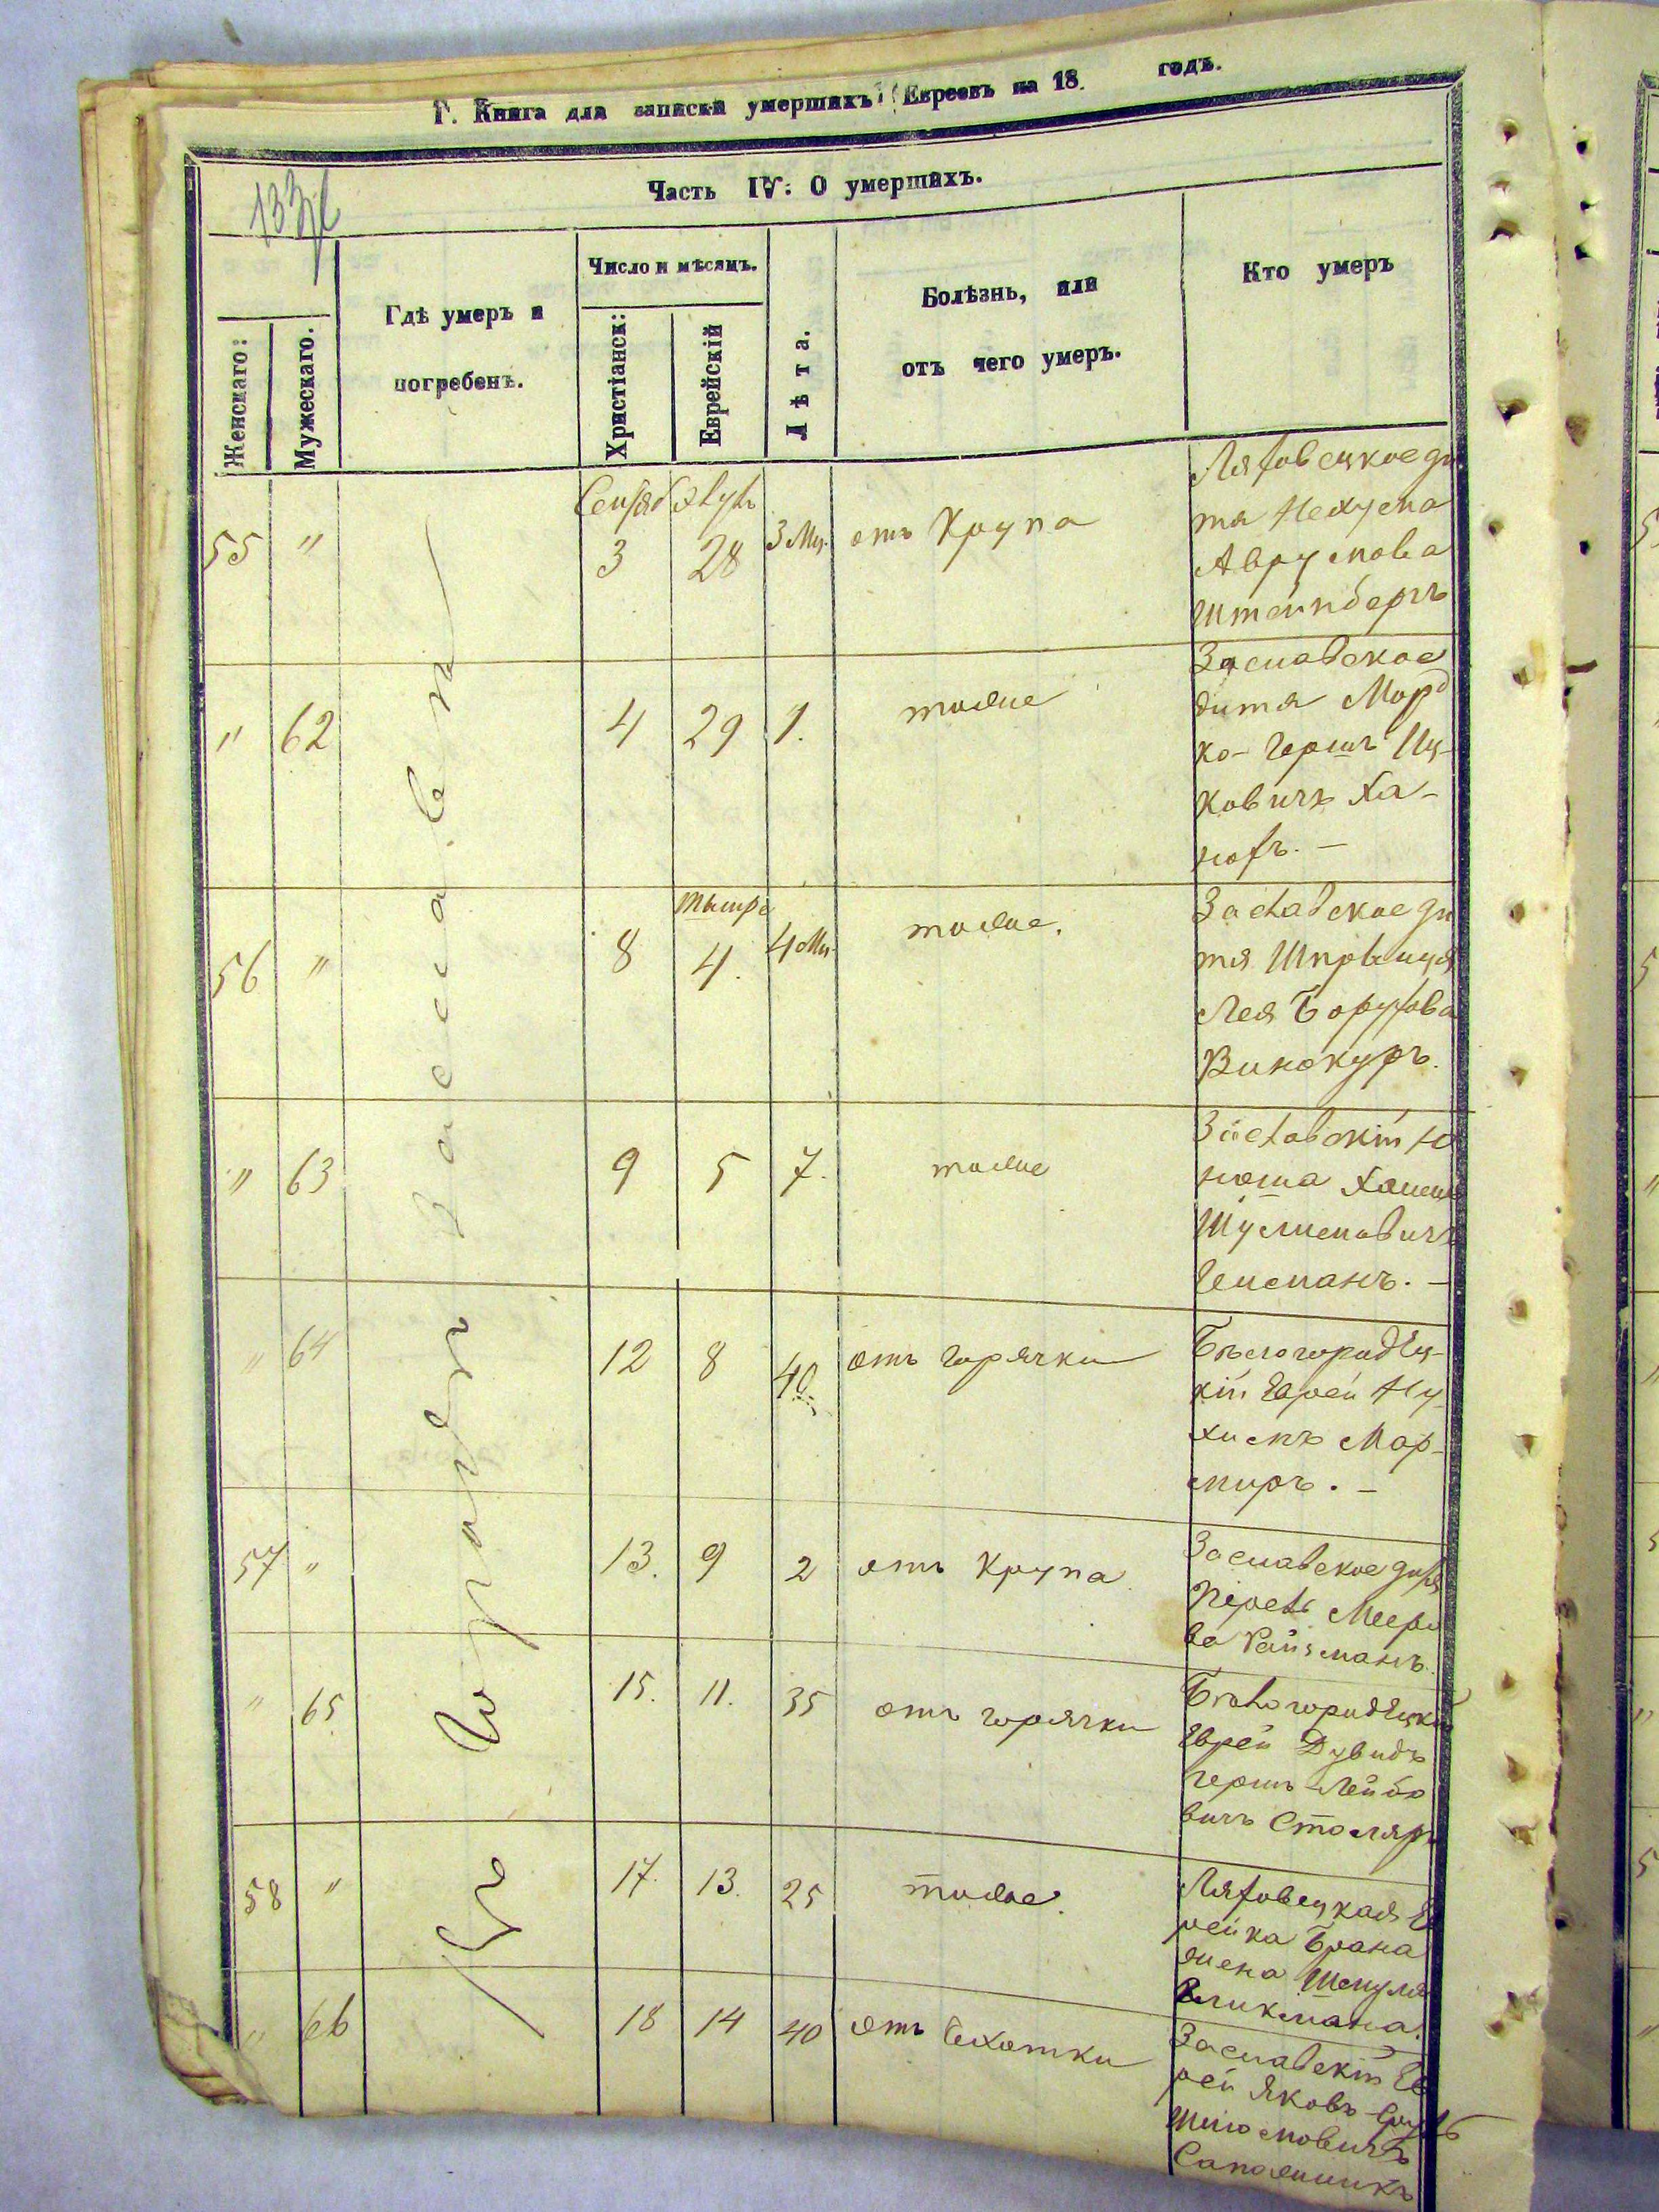 Г. Книга для записки умершихъ Евреевъ на 18 годъ.
Часть IV: О умершихъ.
Женскаго:
Мужескаго.
Гдѣ умеръ и
погребенъ.
Число и мѣсяцъ.
Христіанск:
Еврейскій
Лѣта.
Болѣзнь, или
отъ чего умеръ.
Кто умеръ
Въ городѣ Заславѣ
55 " 3 28 3 Мц. отъ Крупа
Ляховецкое ди
тя Нехума
Аврумова
Штейнберъ
" 62 4 29 1. тоже
Заславское
дитя Морд
ко-Гершъ Иц-
ковичъ Ха-
56 " 8 4. 4 Мц. тоже.
Заславское ди
тя Шпрынця
Лея Борухова
Винокуръ.
" 63 9 5 7. тоже
Заславскій Ю
ноша
Шулимовичъ
" 64 12 8 40. отъ горячки
Бѣлогородец-
кій Еврей Ну
химъ Мар-
миръ. -
57 " 13. 9 2 отъ Крупа
Заславское дитя
Мееро
ва Райзманъ.
" 65 15. 11. 35 отъ горячки
Бѣлогородецкій
Еврей Дувидъ
Гершъ Лейбо
вичъ Столяръ
58 " 17. 13. 25 тоже.
Ляховецкая Ев
рейка Брана
жена Шмуля
Гликмана.
" 66 18 14 40 отъ Сухотки
Заславскій Ев
рей Яковъ
Шліомовичъ
Сапожникъ